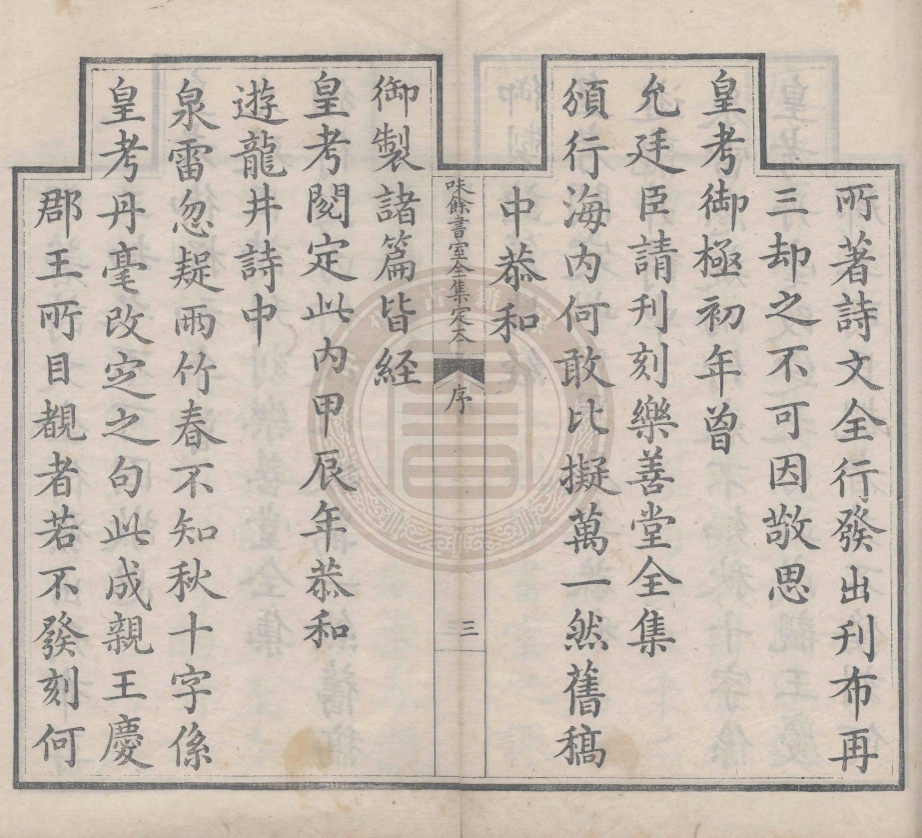 所著詩文全行發出刋布再
三却之不可因敬思
皇考御極初年曾
允廷臣請刋刻樂善堂全集
頒行海内何敢比擬萬一然舊稿
中恭和
味餘書室全集定本
序
三
御製諸篇皆経
皇考閱定此内甲辰年恭和
遊龍井詩中
泉雷忽疑雨竹春不知秋十字係
皇考丹毫改定之句此成親王慶
郡王所目覩者若不發刻何